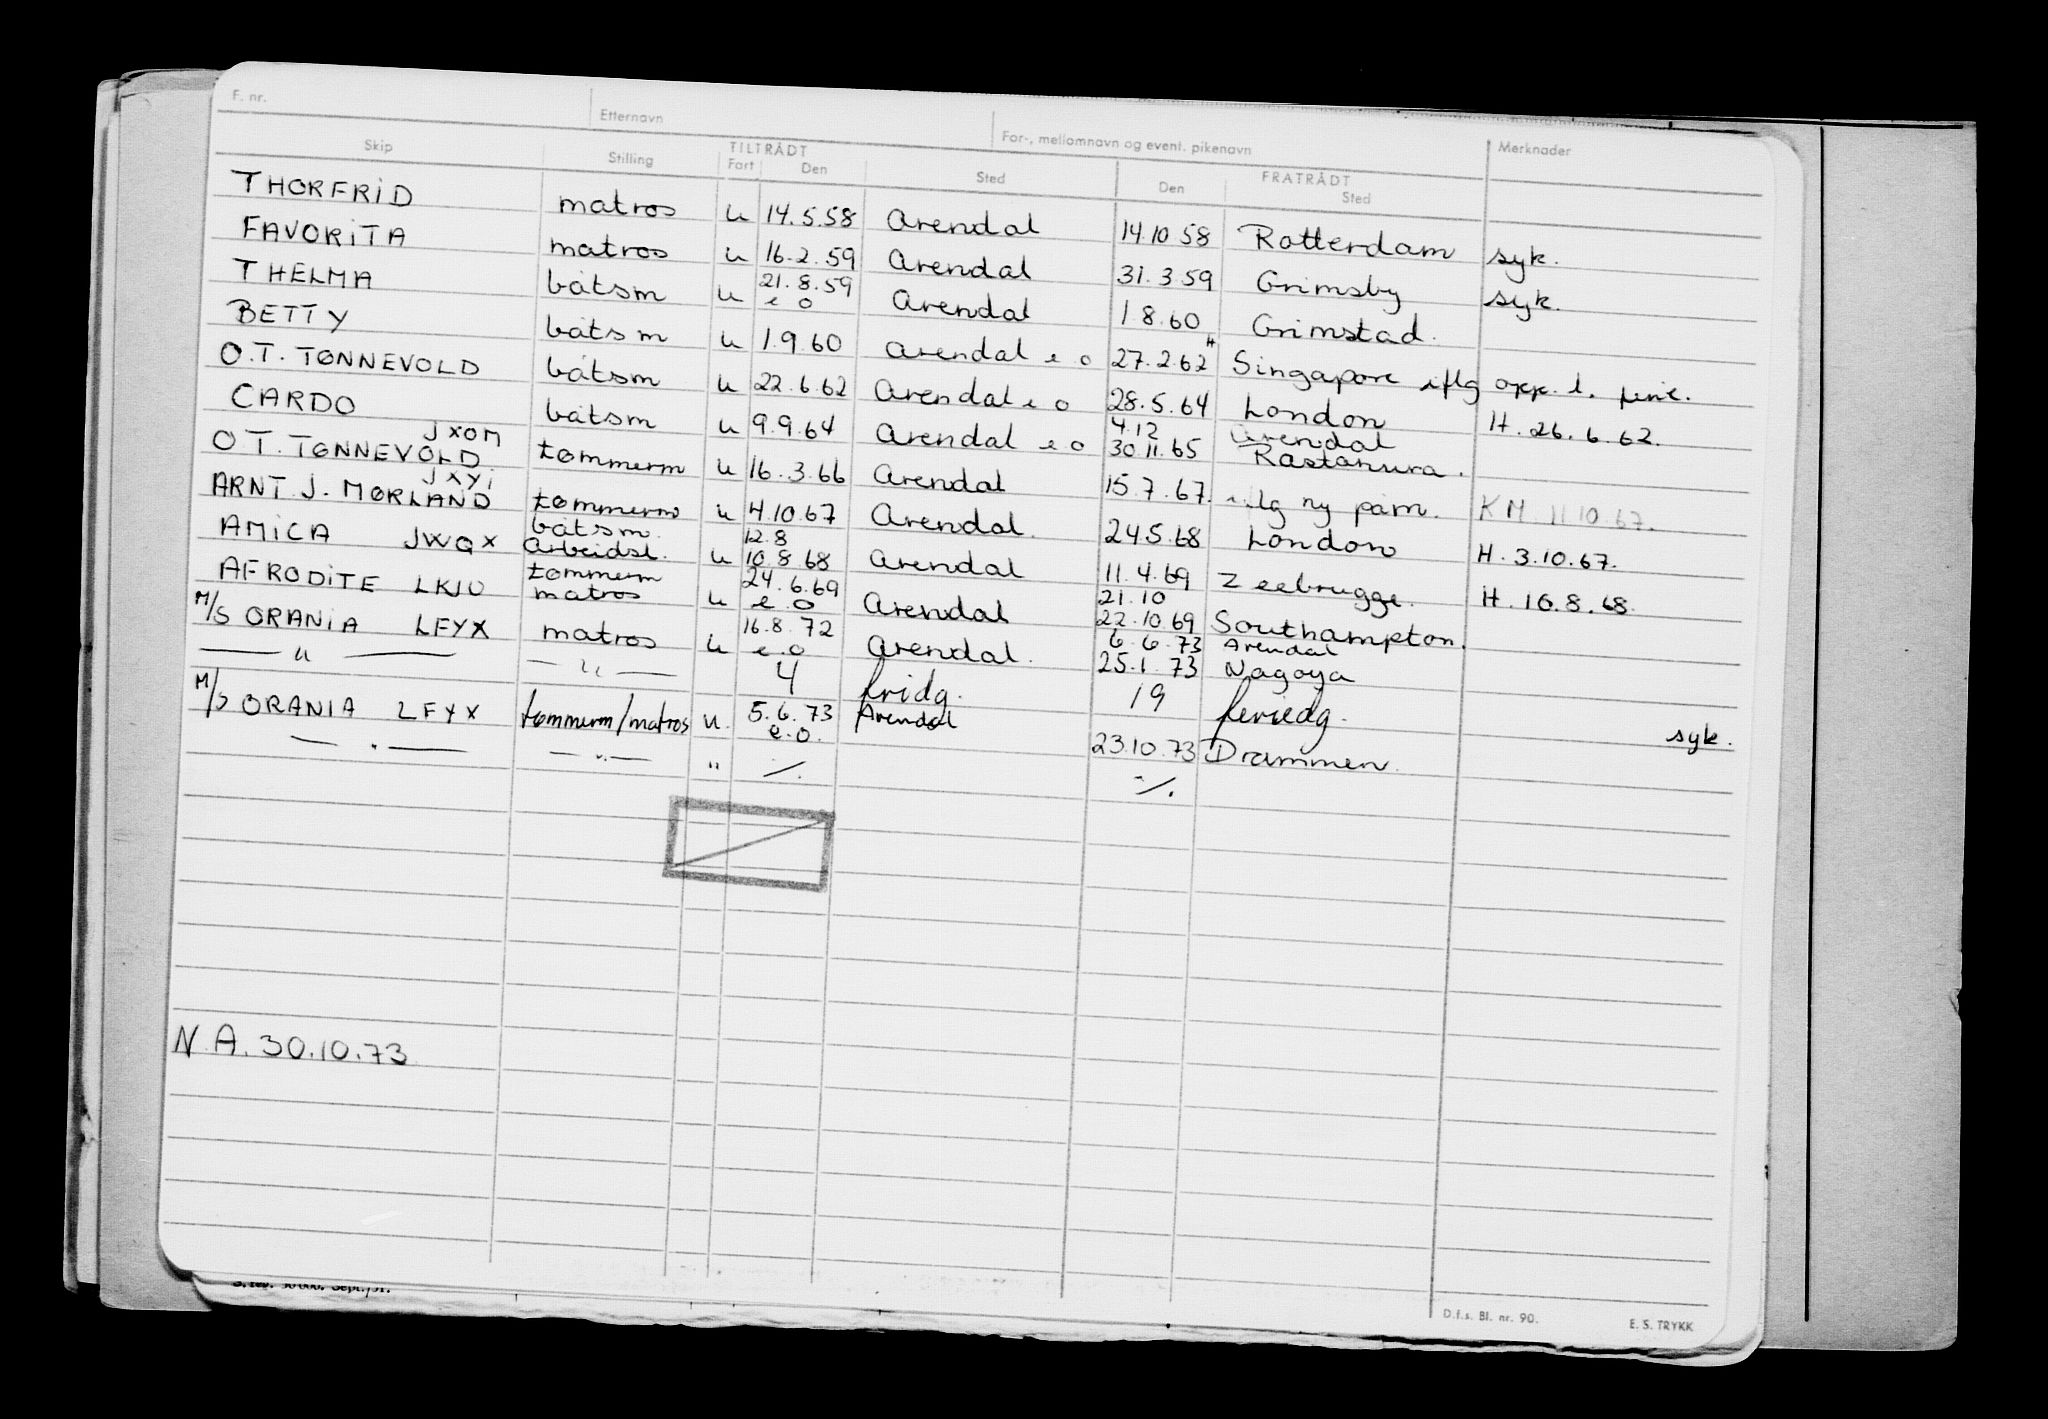 F. nr. Etternavn For-, mellomnavn og event. pikenavn Merknader
Skip Stilling TILTRÅDT Fart Den Sted FRATRÅDT Den Sted
THORFRID matros u 14.5.58 Arendal 14.10 58 Rotterdam syk.
FAVORITA matros u 16.2.59 Arendal 31.3.59 Grimsby syk.
THELMA båtsm u 21.8.59 e o Arendal 1 8.60 Grimstad.
BETTY båtsm u 1.9.60 Arendal e o 27.2.62 H Singapore iflg opp. l.
O.T. TØNNEVOLD båtsm u 22.6.62 Arendal e o 28.5.64 London H. 26.6.62.
CARDO båtsm u 9.9.64 Arendal e o 4.12 30.11.65 Arendal Rastanura.
O T. TØNNEVOLD JXOM tømmerm u 16.3.66 Arendal 15.7.67. ny påm. KM 11 10.67.
ARNT J. MØRLAND JXYI tømmerm u 4.10.67 Arendal. 24.5.68 London H. 3.10.67.
AMICA JWQX båtsm. arbeidsl. u 12.8 10.8 68 Arendal 11.4.69 Zeebrugge. H. 16.8.68.
AFRODITE LKJU tømmerm matros u 24.6.69 e.o Arendal 21.10 22.10.69 Southampton.
M/S ORANIA LFYX matros u 16.8.72 e.o Arendal. 6.6.73 25.1.73 Arendal Nagoya
— " — — " — 4 fridg. 19 feriedg. syk.
M/S ORANIA LFYX tømmerm/matros u. 5.6.73 e.o. Arendal 23.10.73 Drammen.
— " — — " — " ·/. ·/.
N.A. 30.10.73
D.f.s. Bl. nr. 90. E. S. TRYKK